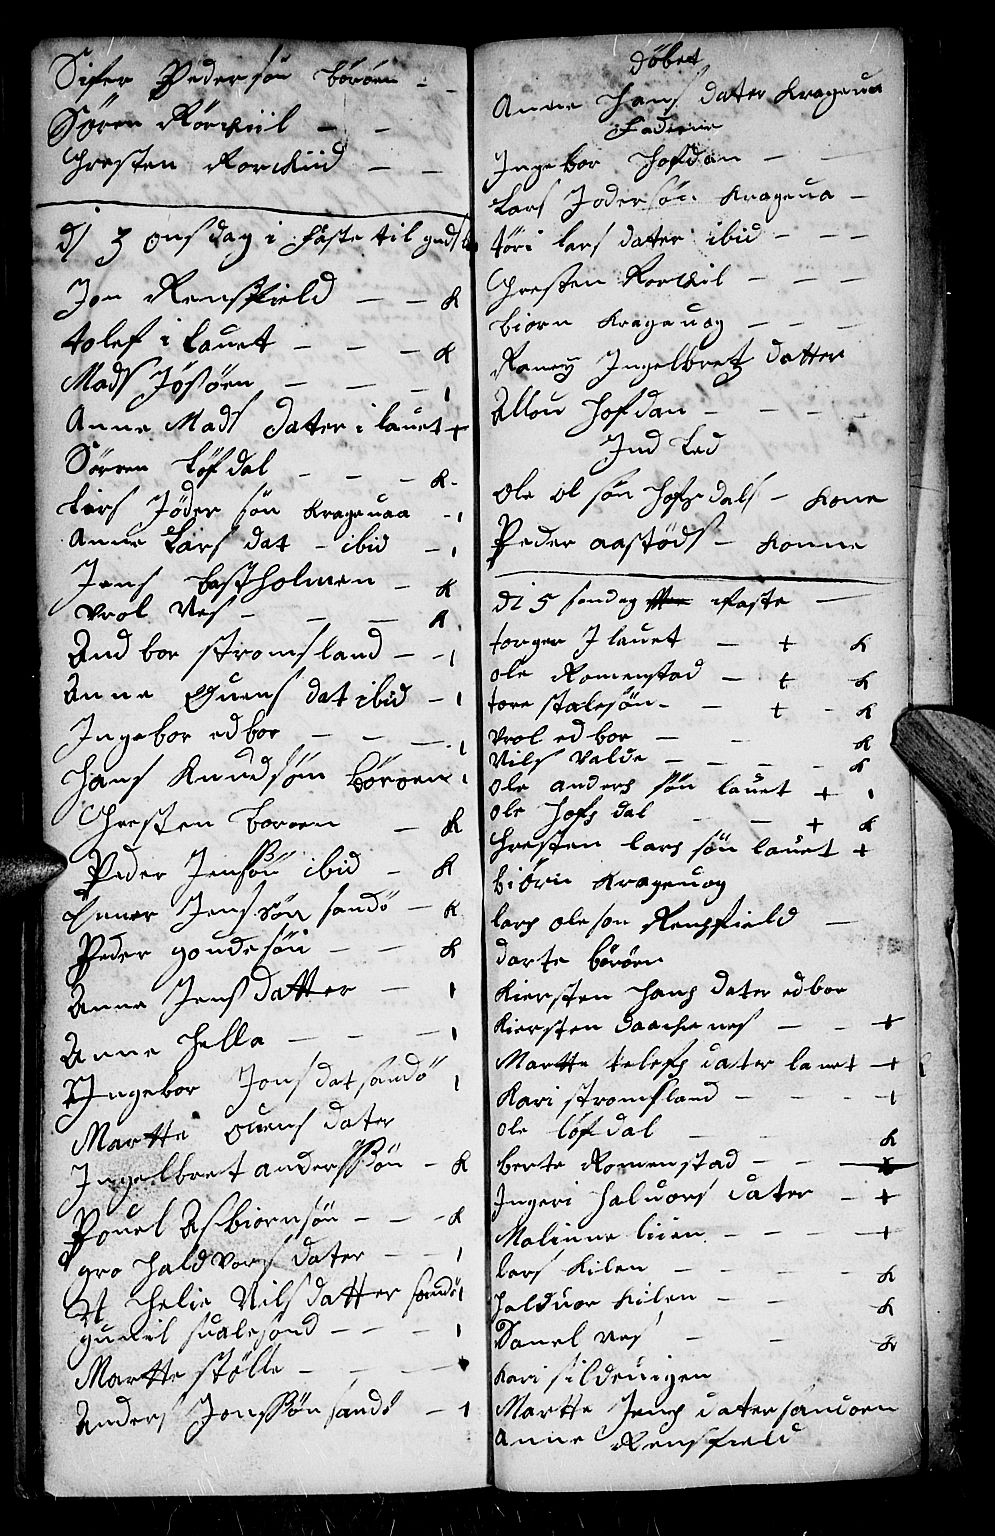 Sifer Pedersøn böröen - -
Søren Rörviil - -
Chresten Rorviid - -
d/ 3 onsdag i faste til guds b
Jon Rensfield - - k
tolef i lauet - - - k
Mads Jösöen - - - 1
Anne Mads datter i lauet +
Sörren löfdal - - - k.
Lars Jöder sön kragevaa - 1
Anne Lars dat - ibid - 1
Jens bastholmen - k
vrol ves - - - k.
And bor stromsland - - 1
Anne Ouens dat ibid - 1
Ingebor edbor - - - 1
Hans Knudsön böröen 1
Chresten boroen - k
Peder Jensön ibid - k
Enner Jenssön sandö - k
Peder gondesön - - k
Anne Jensdatter - 1
Anne Hella - - - 1
Ingebor Jons dat sandö 1
Martte ouens dater
Ingelbret anderssön - k
Pouel Asbiornsön - - - k
gro haldvors dater - - 1
Helie Nils datter sandö 1
gunil sualesond - - - 1
Martte stölle - - - -
Anders Jonssön sandö - 1
döbet
Anne Hans dater Kragevaa
Faderne
Ingebor Hofdan - -
Lars Joder sön Kragevaa -
töri lars datter ibid - - -
Chresten Rorvil - - -
biorn kragevog - - -
Raney Ingelbretz datter
Allou Hofdan - - - -
Ind led
Ole ol sön Hofsdals - kone
Peder aastöds - konne
d/ 5 söndag i faste -
torger I lauet - + k
ole Romenstad - + k
tore stalesön - - + - k
vrol edbor - - k
Nils valde - - - - k
ole anders sön lauet + 1
ole Hofs dal - - + k
Chresten lars sön lauet +
biörn kragevog
lars oleson Rensfield -
dorte böröen
kiersten Hans dater edbor
kiersten daasnes - - +
Martte telefs dater lauet - +
kari stromsland - - - 1
ole löfdal - - k
berte Romenstad - - -
Ingeri Haluors dater - +
Malinne liien - - - - +
lars kilen - - - - k
Halduor kilen - - - k
Danel ves - - k
kari sildeuigen
Martte Jens dater sandoen
Anne Rensfield